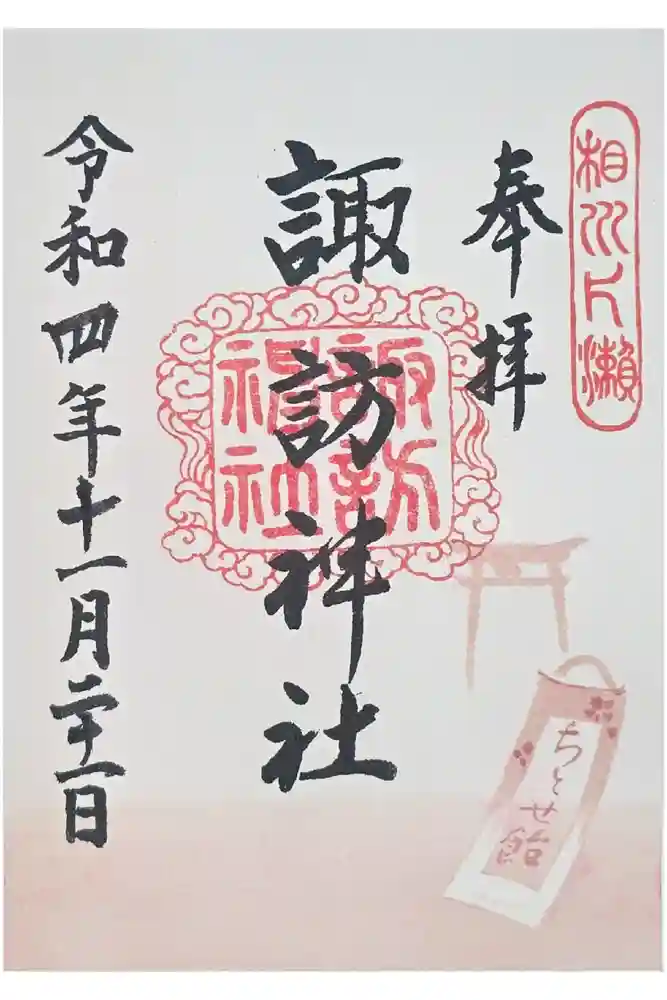 相州片瀨
奉拝
諏訪神社
諏訪
神社
令和四年十一月二十一日
ちとせ飴